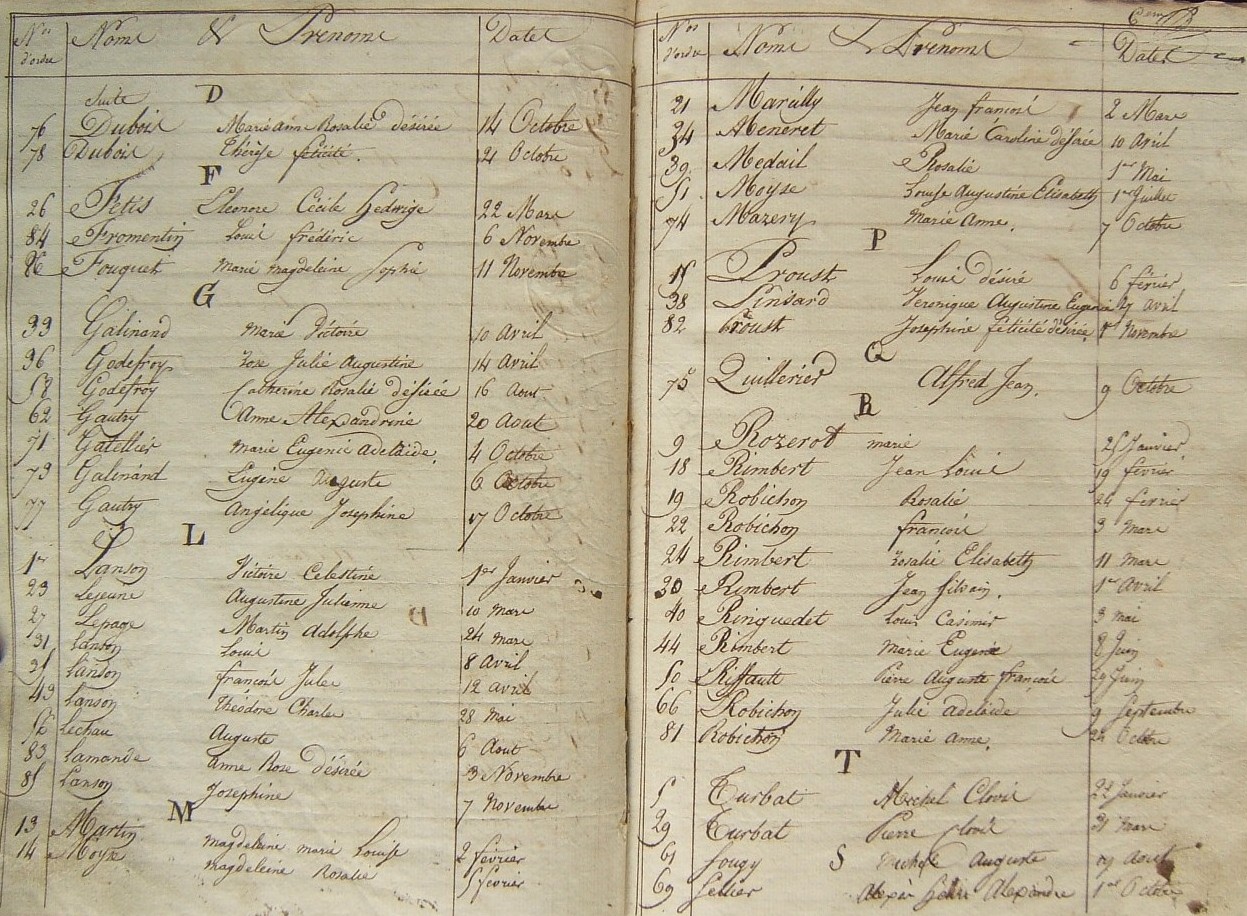 Nos d'ordre Noms & Prénoms Dates
Suite D
76 Dubois Marie Ann Rosalie désirée 14 Octobre
78 Dubois Thérèse félicité. 21 Octobre
F
26 Fetis Eleonore Cécile Hedwige 22 Mars
84 Fromentin Louis frédéric 6 Novembre
86 Fouquet marie magdeleine Sophie 11 Novembre
G
33 Galinand marie Victoire 10 Avril
36 Godefroy Rose Julie Augustine 14 Avril
58 Godefroy Catherine Rosalie désirée 16 Aout
62 Gautry Anne Alexandrine 20 Aout
71 Gatellier marie Eugenie adelaide. 4 Octobre
73 Galinand Eugène Auguste 6 Octobre
77 Gautry Angélique Josephine 17 Octobre
L
1er Lanson Victoire Celestine 1er Janvier
23 Lejeune Augustine Julienne 10 mars
27 Lepage Martin Adolphe 24 mars
31 Lanson Louis 8 Avril
35 Lanson françois Jules 12 avril
43 Lanson Théodore Charles 28 Mai
52 Lechau Auguste 6 Aout
83 Lamande Anne Rose désirée 3 Novembre
85 Lanson Josephine 7 Novembre
M
13 Martin magdeleine marie Louise 2 février
14 Moyse magdeleine Rosalie 5 février
Nos d'ordre Noms & Prénoms Dates
21 Marcilly Jean françois 2 Mars
34 Meneret Marie Caroline désirée 10 Avril
39 Medail Rosalie 1er Mai
51 Moyse Louise Augustine Elisabeth 1er Juillet
74 Mazery Marie Anne. 7 Octobre
P
15 Proust Louis désiré 6 février
38 Pinsard Veronique Augustine Eugenie 27 avril
82 Proust Josephine félicité désirée. 1er Novembre
Q
75 Quillerier Alfred Jean. 9 Octobre
R
9 Rozerot marie 25 Janvier.
18 Rimbert Jean Louis 19 février
19 Robichon Rosalie 26 février
22 Robichon françois 3 mars
24 Rimbert Rosalie Elisabeth 11 mars
30 Rimbert Jean Silvain. 1er Avril
40 Ringuedet Louis Casimir 3 mai
44 Rimbert Marie Eugenie 8 Juin
50 Riffault Pierre Auguste françois 29 Juin
66 Robichon Julie adelaide 9 Septembre
81 Robichon Marie Anne. 22 Octobre
T
5 Turbat Michel Clovis 22 Janvier
29 Turbat Pierre Clovis 31 mars
S
61 Sougy Michel Auguste 19 Aout
69 Sellier Alexis Henri Alexandre 1er Octobre